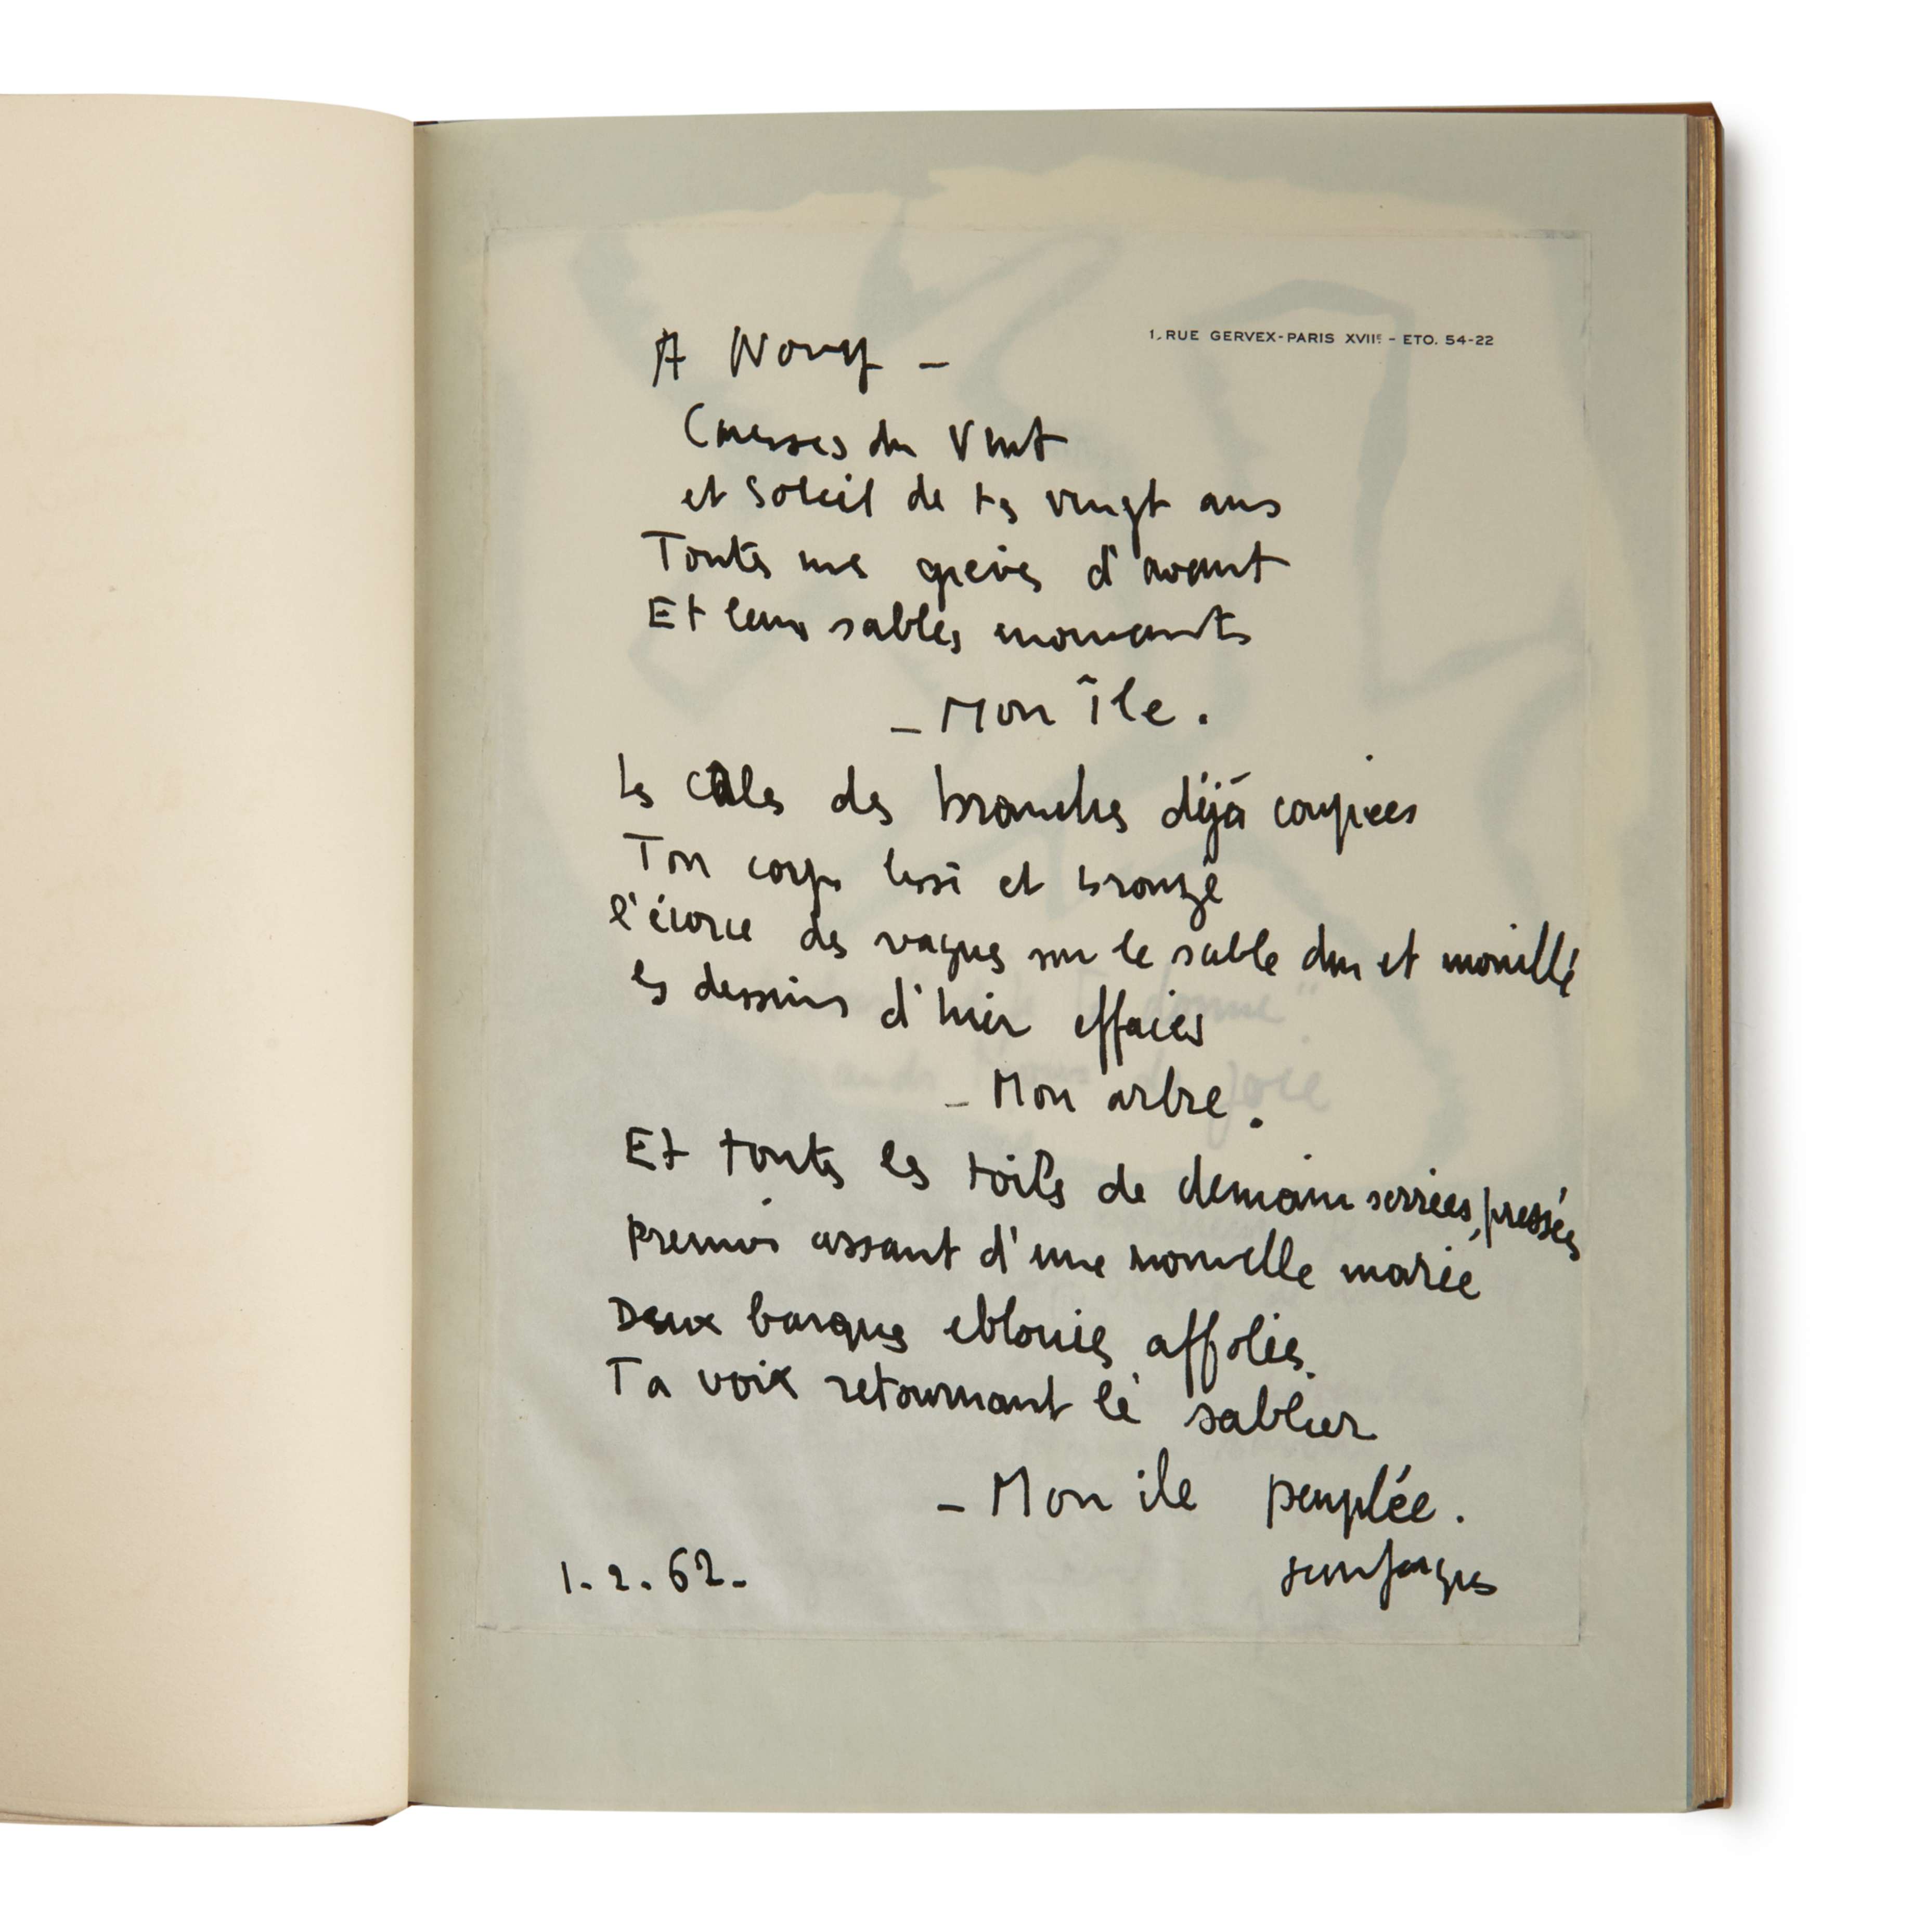 1, RUE GERVEX-PARIS XVIIᵉ - ETO. 54-22
A Nouy –
Caresses du Vent
et soleil de tes vingt ans
Toutes mes grèves d'avant
Et leurs sables mouvants
– Mon île.
les cals des branches déjà coupées
Ton corps lissé et bronzé
l'écorce des vagues sur le sable dur et mouillé
les dessins d'hier effacés
– Mon arbre.
Et toutes les toiles de demain serrées, pressées
premier assaut d'une nouvelle marée
Deux barques eblouies, affolées.
Ta voix retournant le sablier
– Mon ile peuplée.
1.2.62.
donne"
de joie